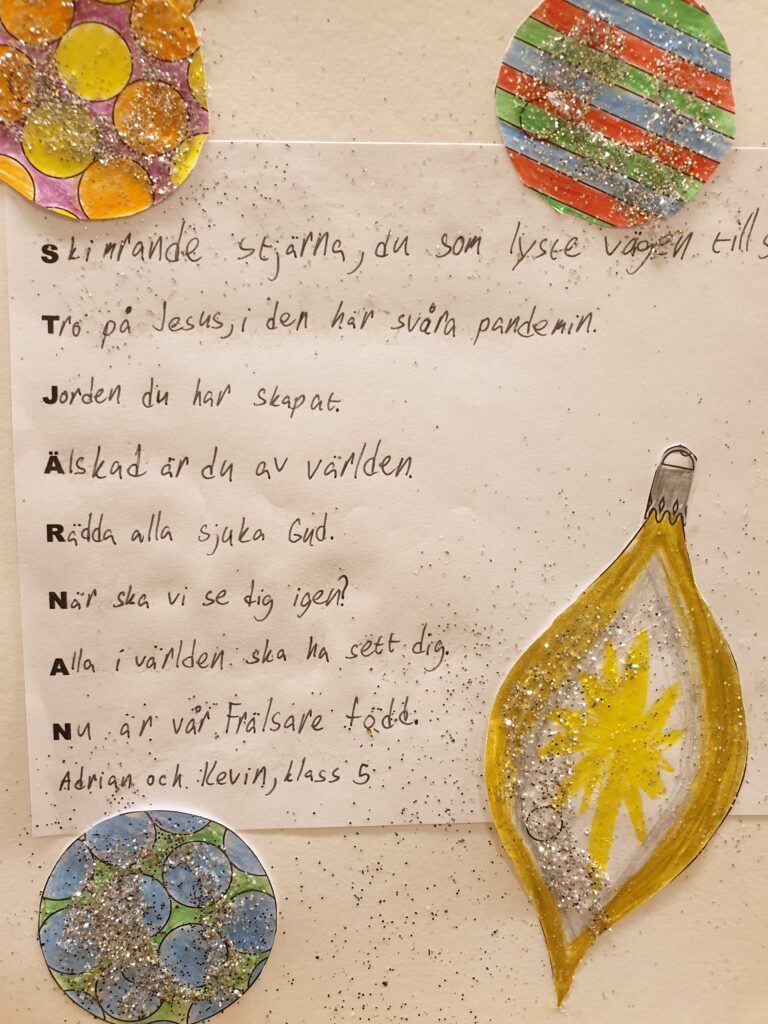 Skimrande stjärna, du som lyste vägen till
Tro på Jesus, i den här svåra pandemin.
Jorden du har skapat.
Älskad är du av världen.
Rädda alla sjuka Gud.
När ska vi se dig igen?
Alla i världen ska ha sett dig.
Nu är vår Frälsare född.
Adrian och Kevin, klass 5